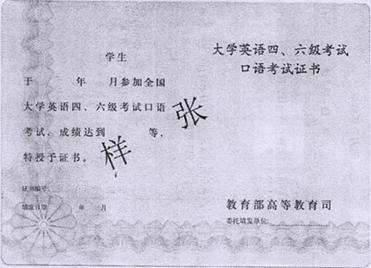 学生
于 年 月参加全国
大学英语四、六级考试口语
考试,成绩达到 等,
特授予证书。
证书编号:
填发日期 年 月
样张
大学英语四、六级考试
口语考试证书
教育部高等教育司
委托填发单位: